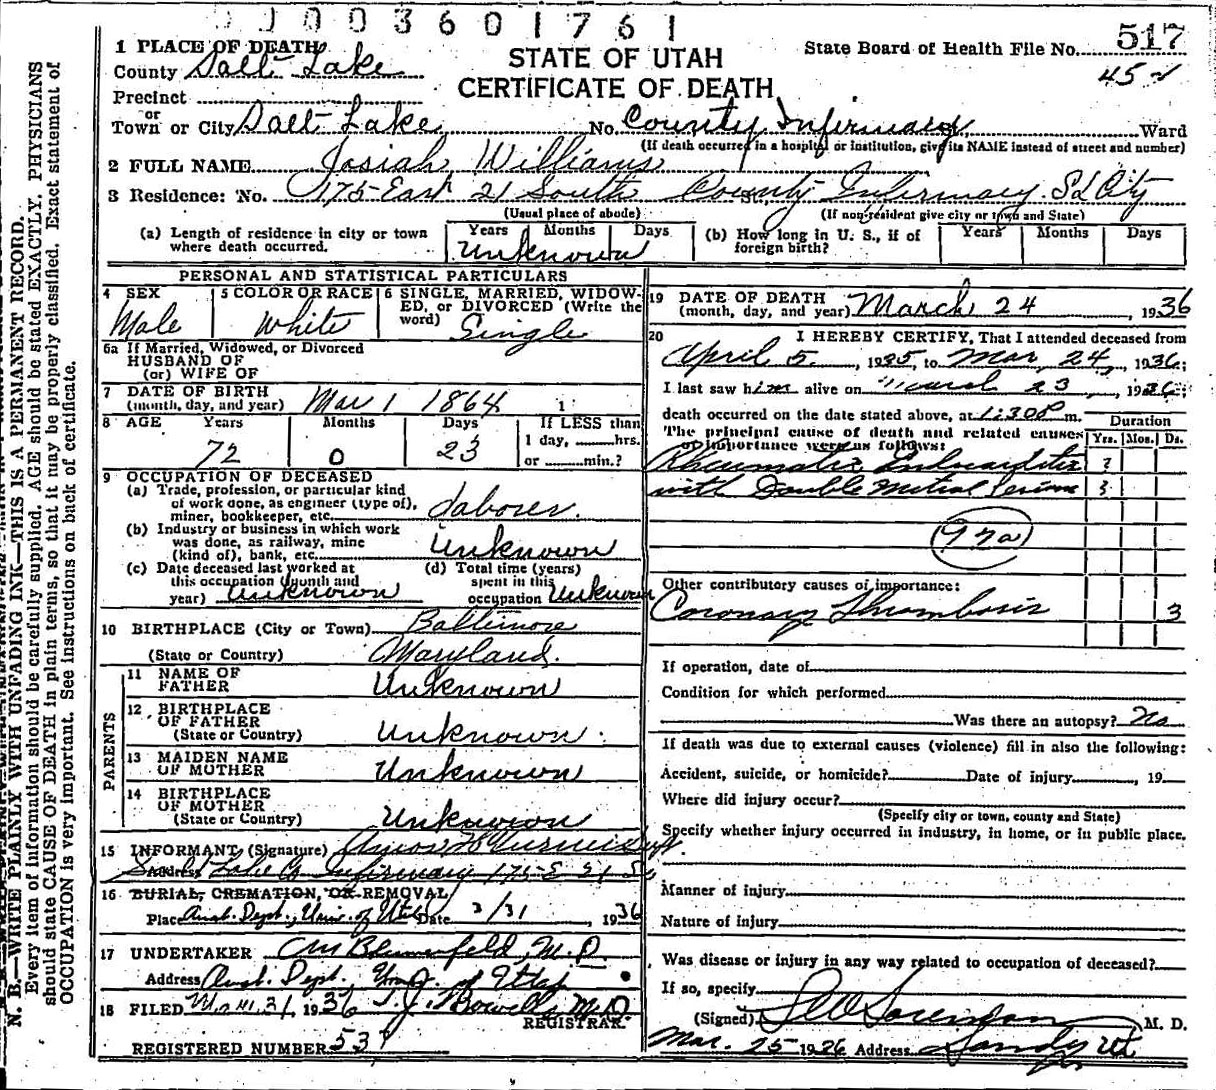 0003601761
1 PLACE OF DEATH
STATE OF UTAH
CERTIFICATE OF DEATH
State Board of Health File No. 517
County Salt Lake
Precinct
or
Town or City Salt Lake No. County Infirmary, Ward
(If death occurred in a hospital or institution, give its NAME instead of street and number)
2 FULL NAME Josiah Williams
3 Residence: No. 175 East 21 South St., County Infirmary S L City
(Usual place of abode) (If non-resident give city or town and State)
(a) Length of residence in city or town where death occurred. Years Months Days Unknown
(b) How long in U. S., if of foreign birth? Years Months Days
PERSONAL AND STATISTICAL PARTICULARS
4 SEX Male
5 COLOR OR RACE White
6 SINGLE, MARRIED, WIDOWED, or DIVORCED (Write the word) Single
6a If Married, Widowed, or Divorced
HUSBAND OF
(or) WIFE OF
7 DATE OF BIRTH
(month, day, and year) Mar 1 1864
8 AGE Years Months Days If LESS than
72 0 23 1 day, hrs.
or min.?
9 OCCUPATION OF DECEASED
(a) Trade, profession, or particular kind
of work done, as engineer (type of),
miner, bookkeeper, etc. Laborer.
(b) Industry or business in which work
was done, as railway, mine
(kind of), bank, etc. Unknown
(c) Date deceased last worked at
this occupation (month and
year) Unknown
(d) Total time (years)
spent in this
occupation Unknown
10 BIRTHPLACE (City or Town) Baltimore
(State or Country) Maryland.
PARENTS
11 NAME OF
FATHER Unknown
12 BIRTHPLACE
OF FATHER
(State or Country) Unknown
13 MAIDEN NAME
OF MOTHER Unknown
14 BIRTHPLACE
OF MOTHER
(State or Country) Unknown
15 INFORMANT (Signature) Amos H
Address Salt Lake Co Infirmary 175 E 21 So
16 BURIAL, CREMATION, OR REMOVAL
Place Anat. Dept., Univ. of Utah Date 3/31, 1936
17 UNDERTAKER Blumenfeld, M.D.
Address Anat. Dept. Univ. of Utah
18 FILED Mar 31, 1936 T. J. Howells M.D.
REGISTRAR.
REGISTERED NUMBER 537
19 DATE OF DEATH
(month, day, and year) March 24, 1936
20 I HEREBY CERTIFY, That I attended deceased from
April 5, 1935, to Mar 24, 1936;
I last saw him alive on March 23, 1936;
death occurred on the date stated above, at 1:30 P m.
The principal cause of death and related causes
of importance were as follows:
Duration
Yrs. Mos. Ds.
Rheumatic Endocarditis ?
with Double Mitral
92a
Other contributory causes of importance:
Coronary Thrombosis 3
If operation, date of
Condition for which performed
Was there an autopsy? No
If death was due to external causes (violence) fill in also the following:
Accident, suicide, or homicide? Date of injury, 19
Where did injury occur?
(Specify city or town, county and State)
Specify whether injury occurred in industry, in home, or in public place.
Manner of injury
Nature of injury
Was disease or injury in any way related to occupation of deceased?
If so, specify
(Signed) Sorenson M. D.
Mar. 25 1936 Address Sandy Ut
N. B.—WRITE PLAINLY WITH UNFADING INK—THIS IS A PERMANENT RECORD.
Every item of information should be carefully supplied. AGE should be stated EXACTLY. PHYSICIANS
should state CAUSE OF DEATH in plain terms, so that it may be properly classified. Exact statement of
OCCUPATION is very important. See instructions on back of certificate.